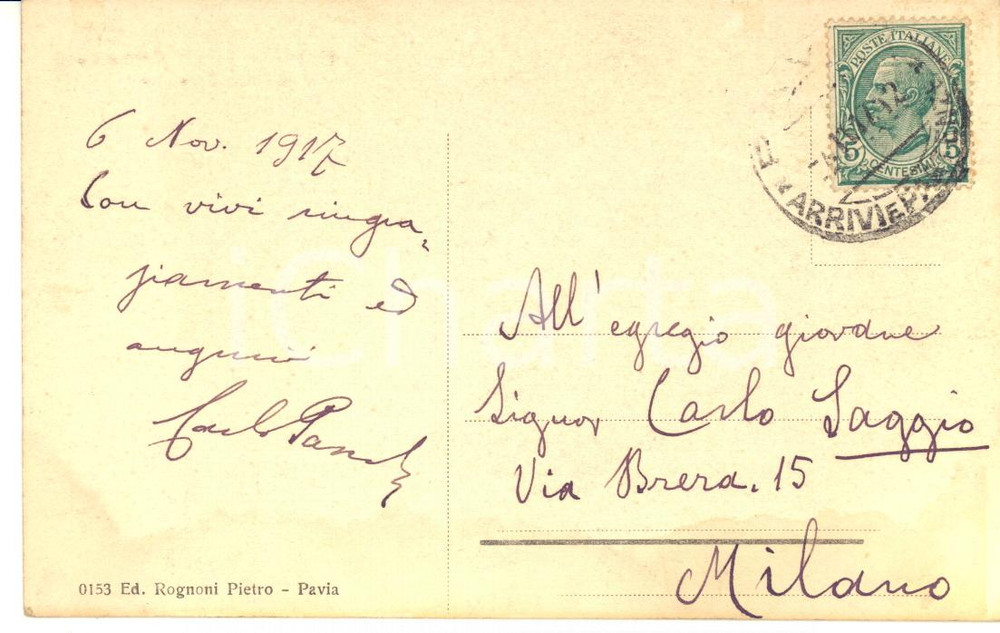 6 Nov. 1917
Con vivi ringra-
ziamenti ed
auguri
Carlo
POSTE ITALIANE
5 5
CENTESIMI
ARRIVI E P
All'egregio giovane
Signor Carlo Saggio
Via Brera. 15
Milano
0153 Ed. Rognoni Pietro - Pavia
iCharta